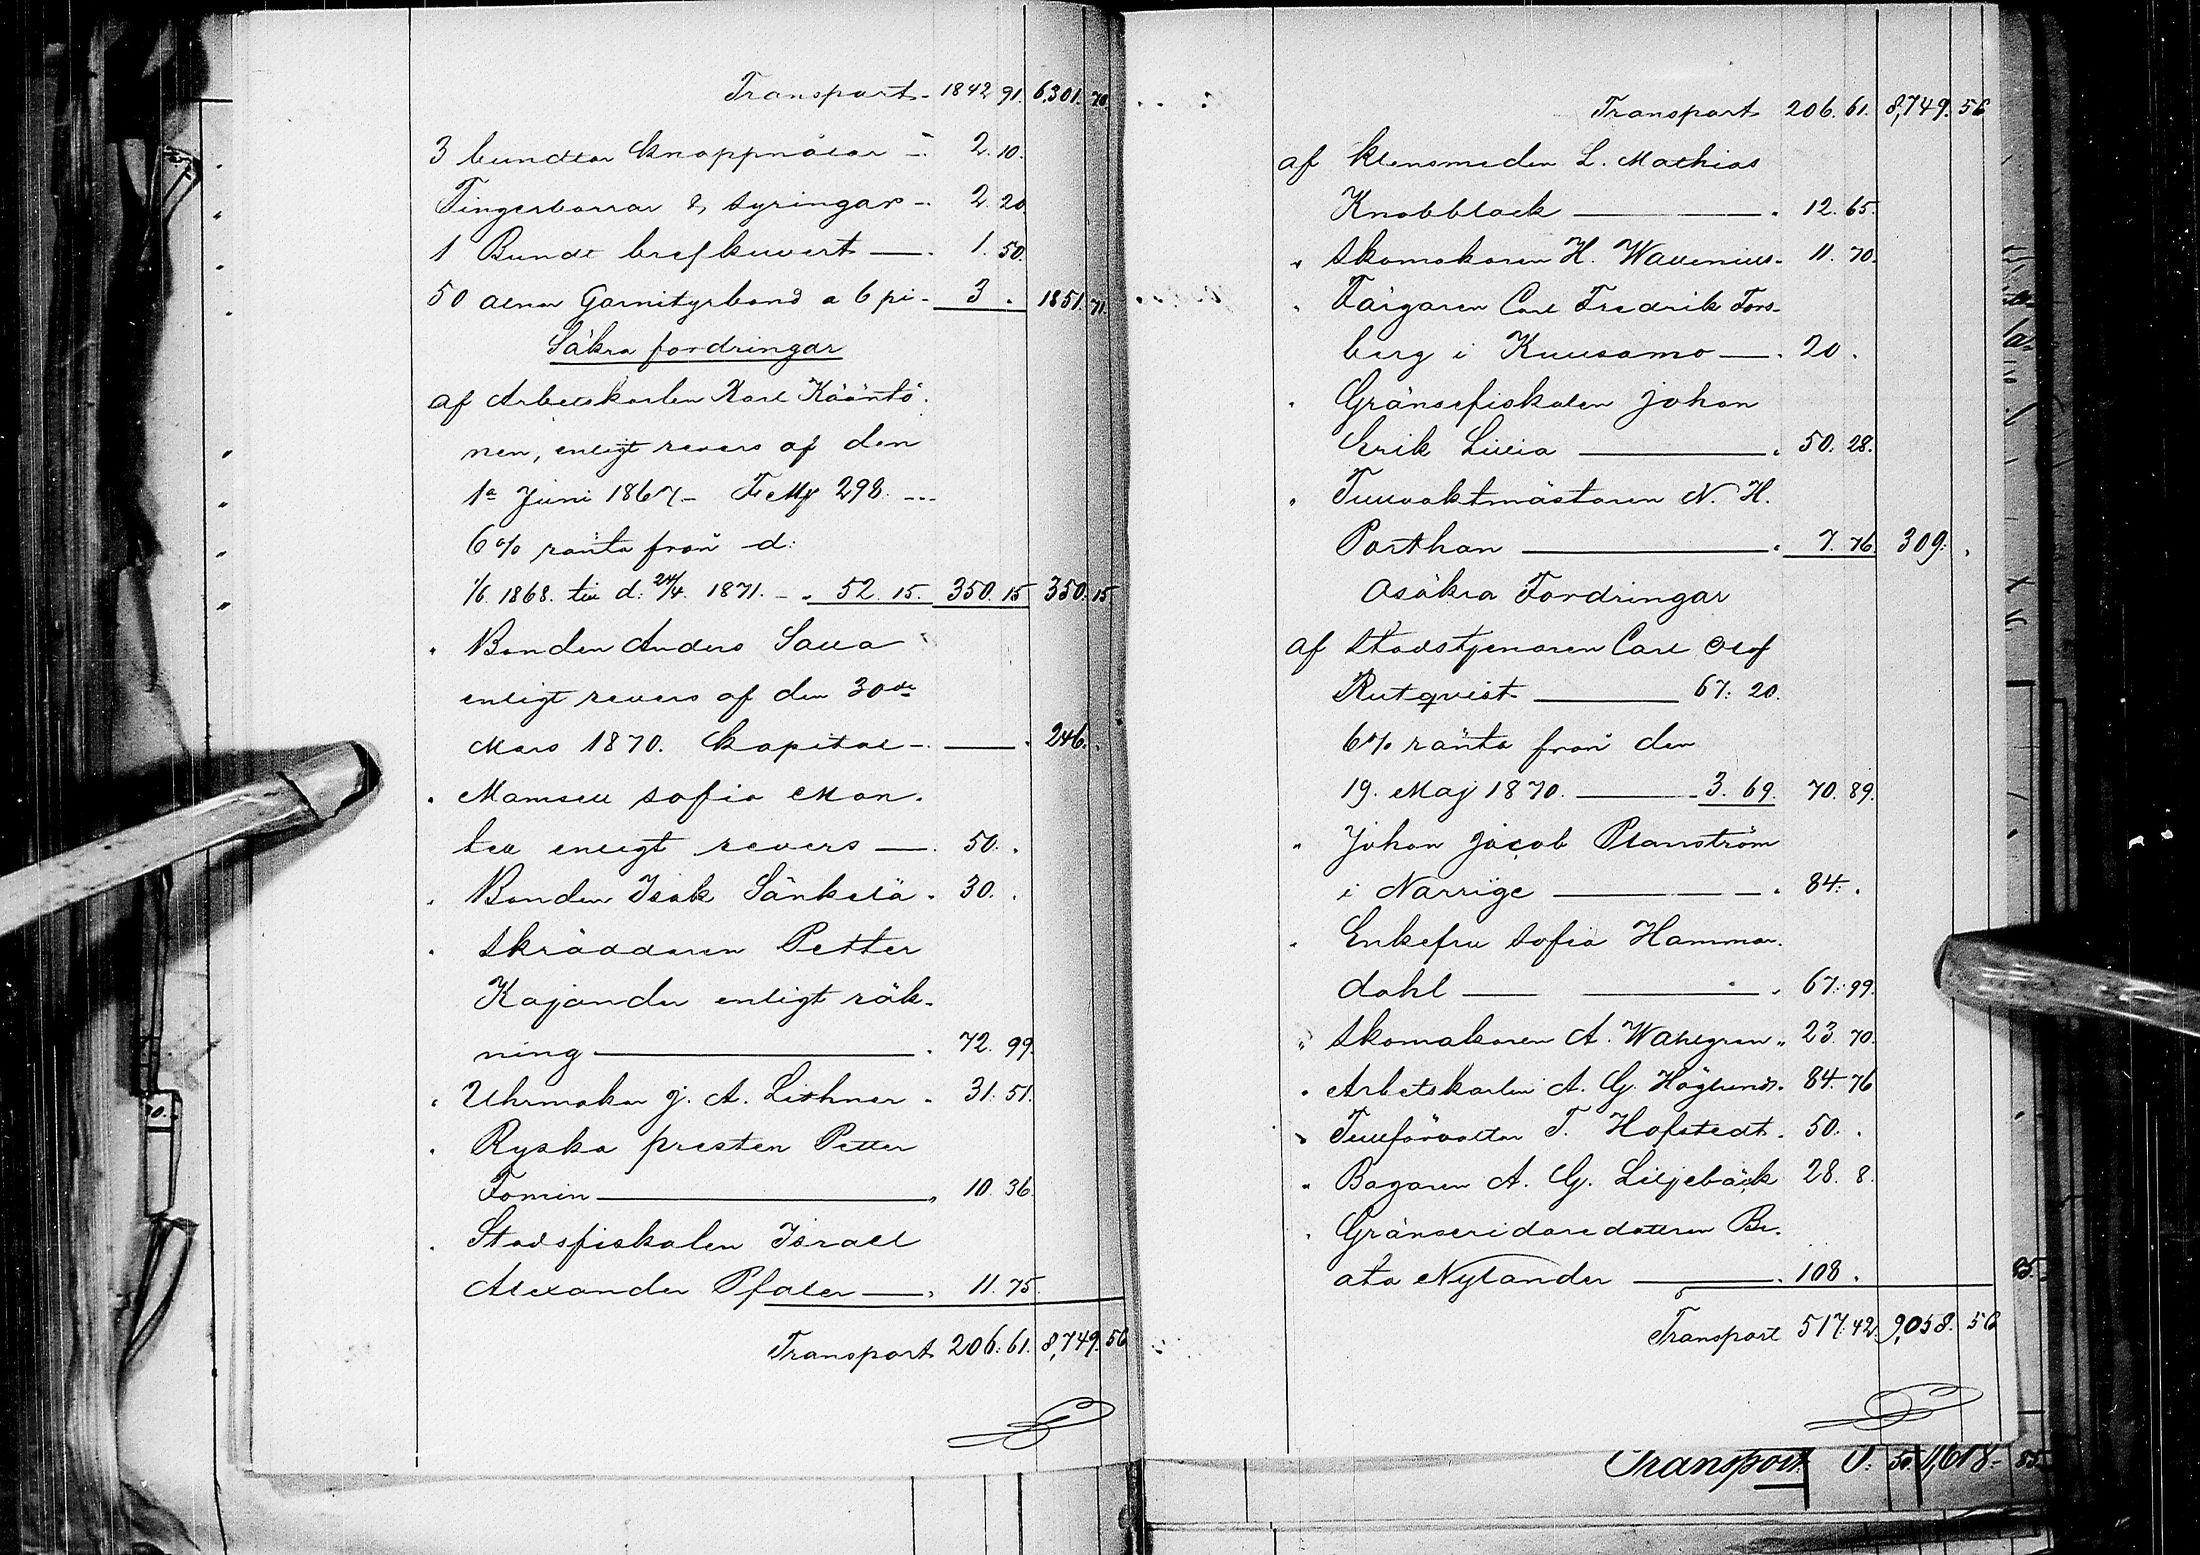 Transport 1842 91. 6,301. 70.
3 bundtar knappnålar 2. 10.
Fingerborrar & syringar 2. 20
1 Bundt brefkuvert 1. 50.
50 alnar Garnityrband a 6 pi 3 . 1851. 71.
Säkra fordringar
af Arbetskarlen Karl Kääntö-
nen, enligt revers af den
1a Juni 1867 - FMk 298. ...
6% ränta från d:
1/6. 1868. till d: 24/4. 1871. - 52. 15. 350. 15 350. 15
" Bonden Anders Salla
enligt revers af den 30de
Mars 1870. Kapital 246. .
" Mamsell Sofia Mon-
tell enligt revers 50. .
" Bonden Isak Sänkelä 30. .
" Skräddaren Petter
Kajander enligt räk-
ning 72. 99.
" Uhrmakar J. A. Lithner 31. 51.
" Ryska presten Petter
Fomin 10. 36.
" Stadsfiskalen Israel
Alexander Pfaler 11. 75.
Transport 206. 61. 8,749. 56
Transport 206. 61. 8,749. 56
af Klensmeden L. Mathias
Knobblock 12. 65.
" Skomakaren H. Wallenius 11. 70.
" Färgaren Carl Fredrik Fors-
berg i Kuusamo 20 .
" Gränsefiskalen Johan
Erik Lillia 50. 28.
" Tullvaktmästaren N. H.
Porthan 7. 76. 309. .
Osäkra Fordringar
af Stadstjenaren Carl Olof
Rutqvist 67: 20.
6% ränta från den
19. Maj 1870. 3. 69. 70. 89.
" Johan Jacob Planström
i Norrige 84. .
" Enkefru Sofia Hammar-
dahl 67. 99.
" Skomakaren A. Wahlgren " 23. 70.
" Arbetskarlen A. G. Höglund. 84. 76
" Tullförvalter T. Hofstedt. 50. .
" Bagaren A. G. Liljebäck 28. 8.
" Gränseridaredottren Be-
ata Nylander 108 .
Transport 517. 42. 9,058. 56
Transport